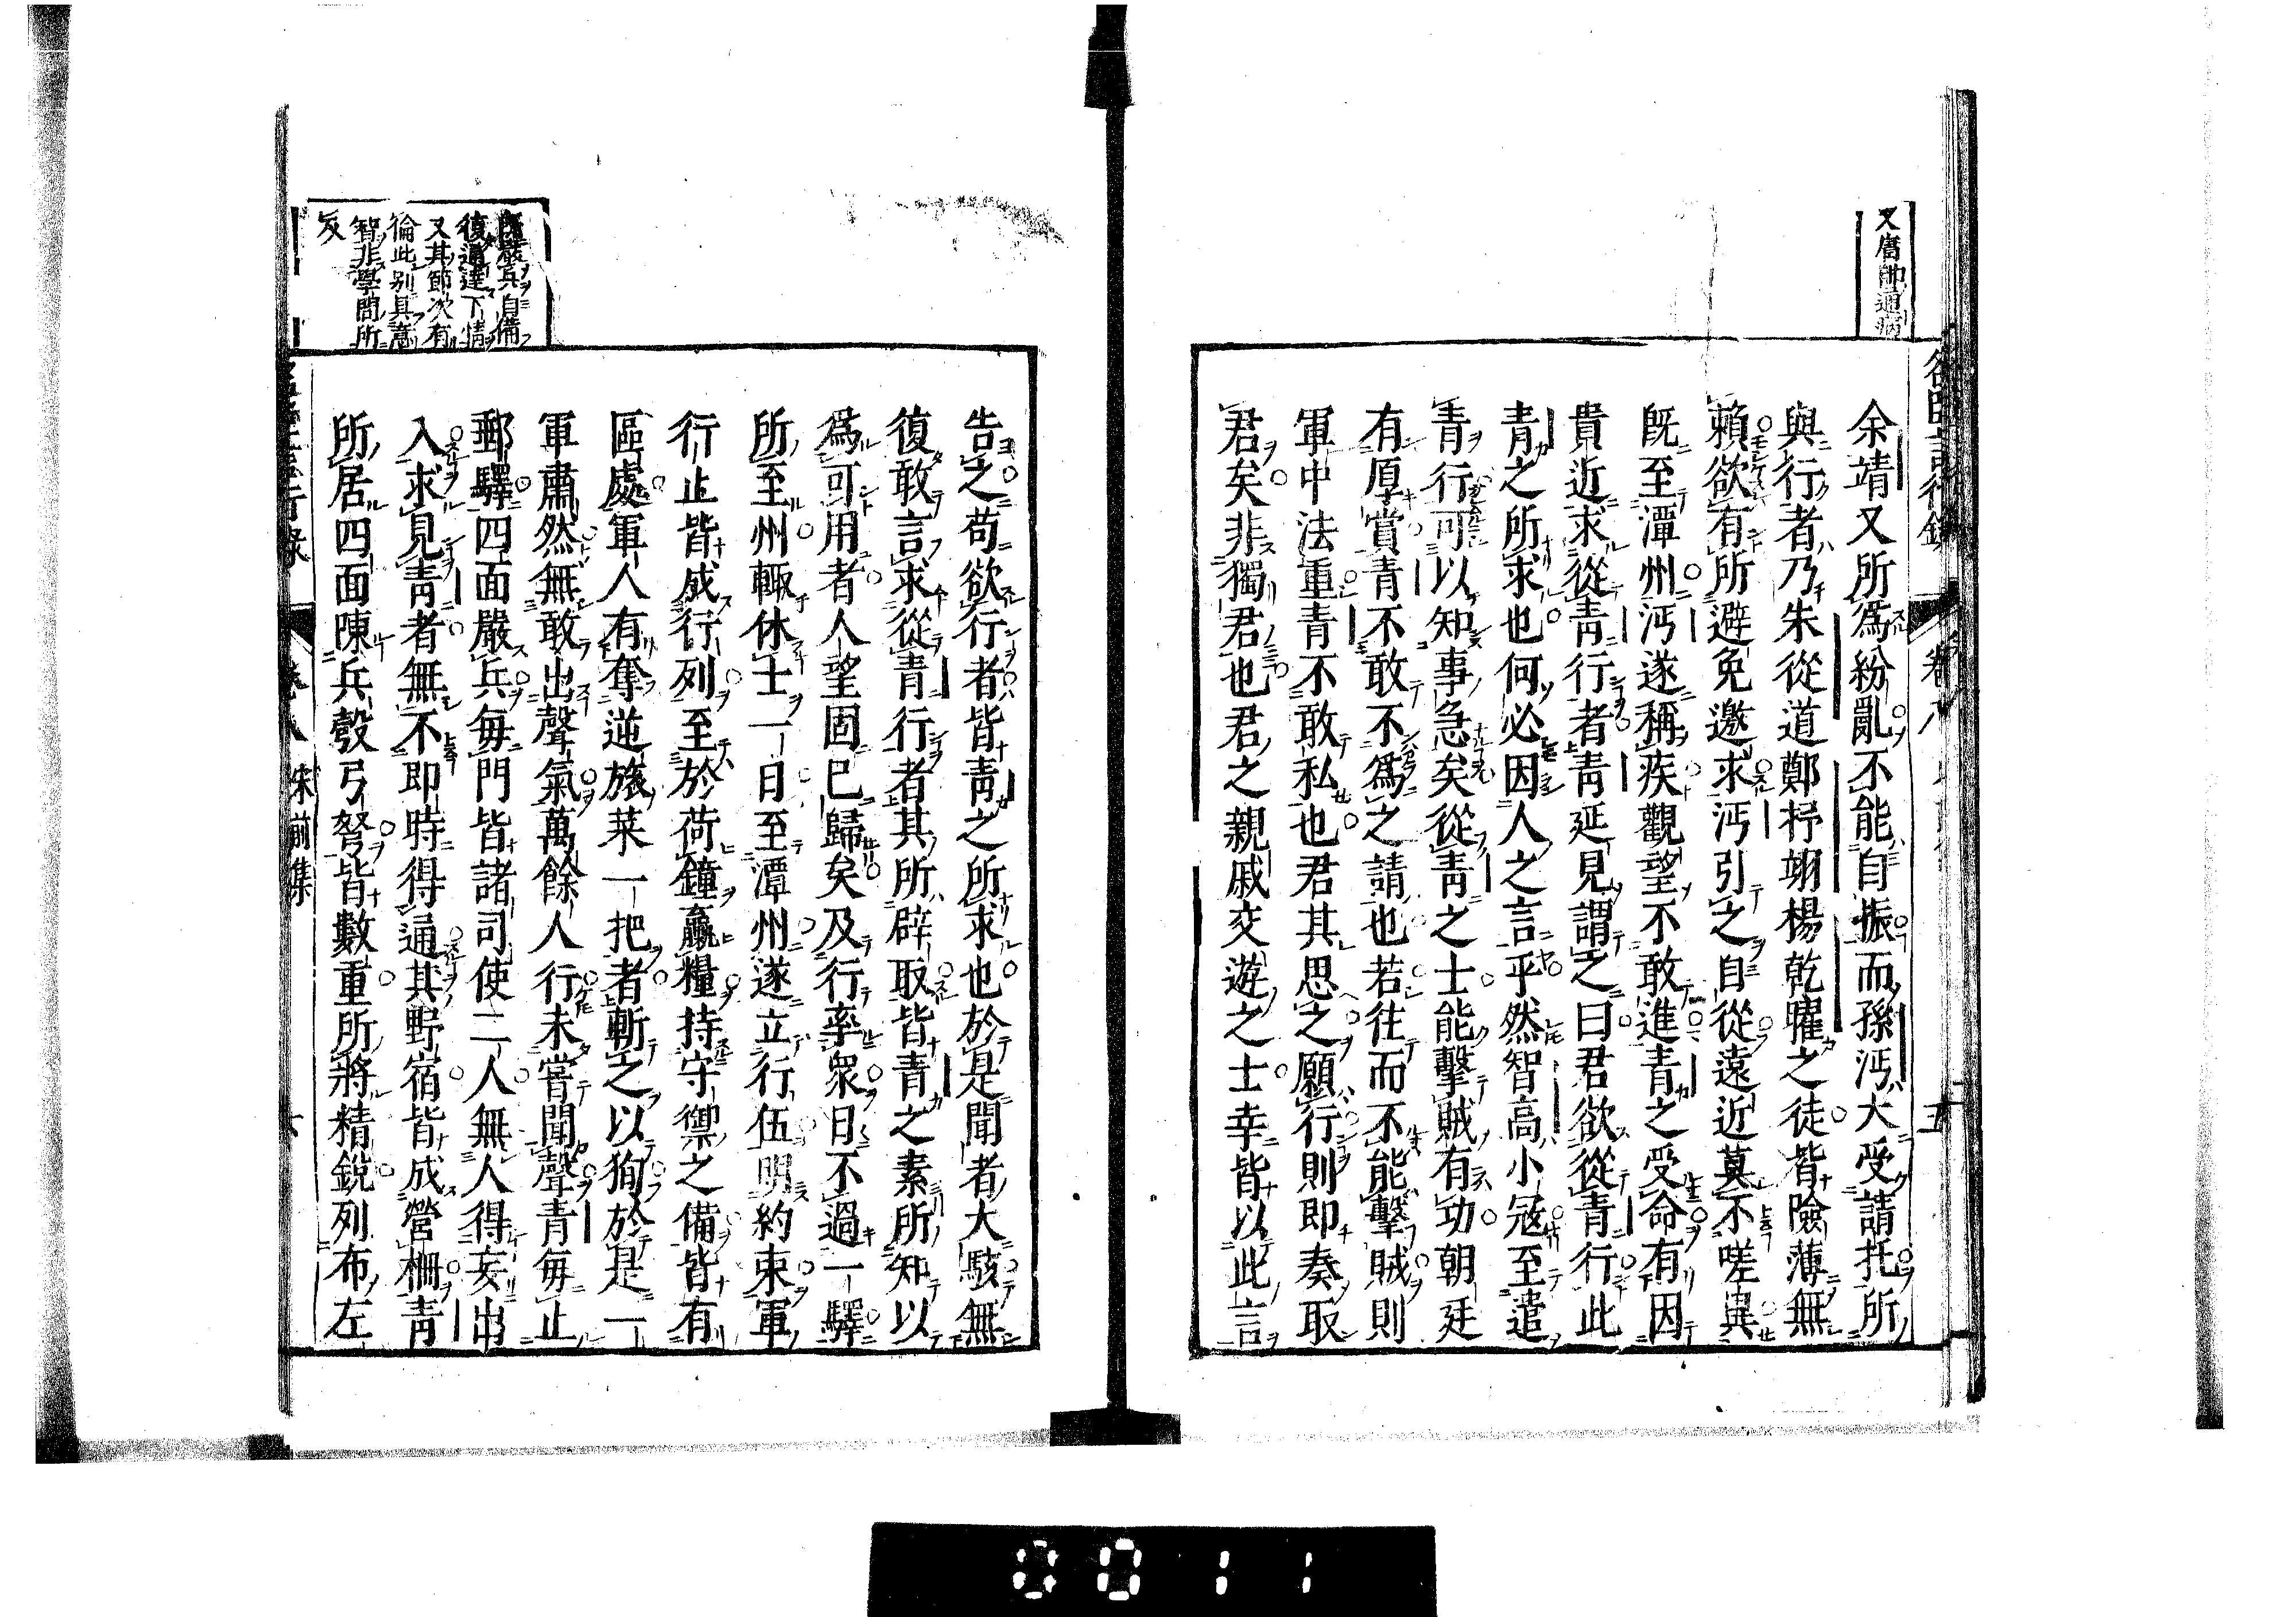 又庸帥通病
余靖又所爲紛亂不能自振而孫沔大受請托所
與行者乃朱從道鄭杼翊楊乾曜之徒皆險薄無
賴欲有所避免邀求沔引之自從遠近莫不嗟異
既至潭州沔遂稱疾觀望不敢進青之受命有因
貴近求從青行者青延見謂之曰君欲從青行此
青之所求也何必因人之言乎然智高小寇至遣
青行可以知事急矣從青之士能擊賊有功朝廷
有厚賞青不敢不爲之請也若往而不能擊賊則
軍中法重青不敢私也君其思之願行則即奏取
君矣非獨君也君之親戚交遊之士幸皆以此言
嚴兵自備
復通達下情
又其節次有
倫此別具意
智非學問所
及
告之苟欲行者皆青之所求也於是聞者大駭無
復敢言求從青行者其所辟取皆青之素所知以
爲可用者人望固已歸矣及行率衆日不過一驛
所至州輒休士一日至潭州遂立行伍明約束軍
行止皆成行列至於荷鍤贏糧持守禦之備皆有
區處軍人有奪逆旅菜一把者斬之以狥於是一
軍肅然無敢出聲氣萬餘人行未嘗聞聲青每止
郵驛四面嚴兵每門皆諸司使二人無人得妄出
入求見青者無不即時得通其野宿皆成營柵青
所居四面陳兵彀弓弩皆數重所將精銳列布左
宋前集